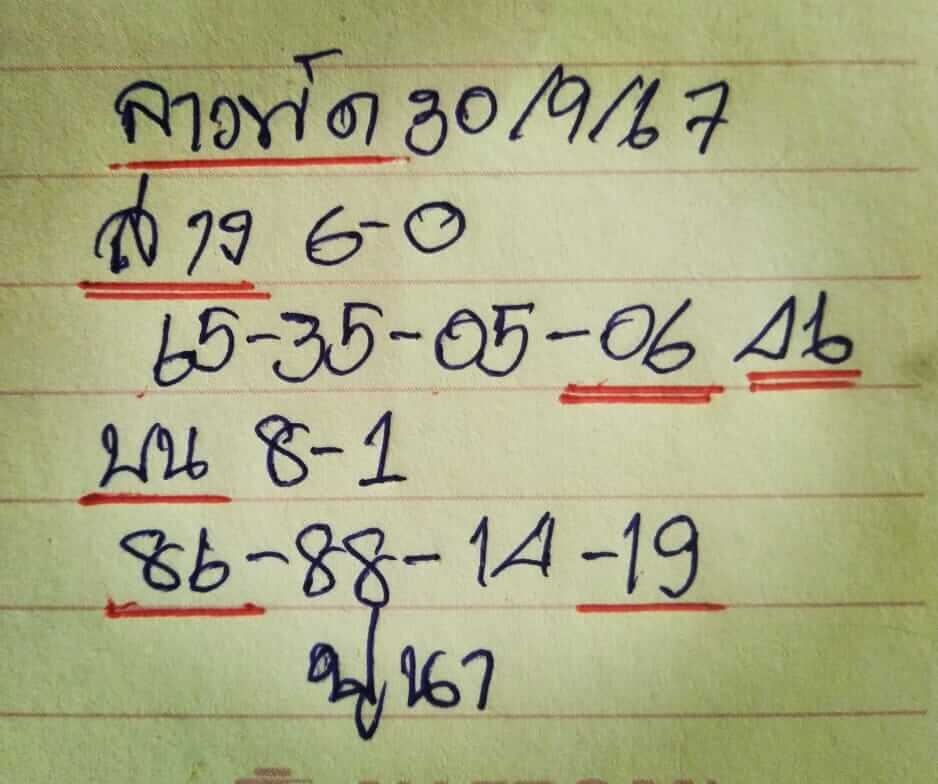 ลาวพัฒ 30/9/67
ล่าง 6-0
65-35-05-06 46
บน 8-1
86-88-14-19
ปูนา